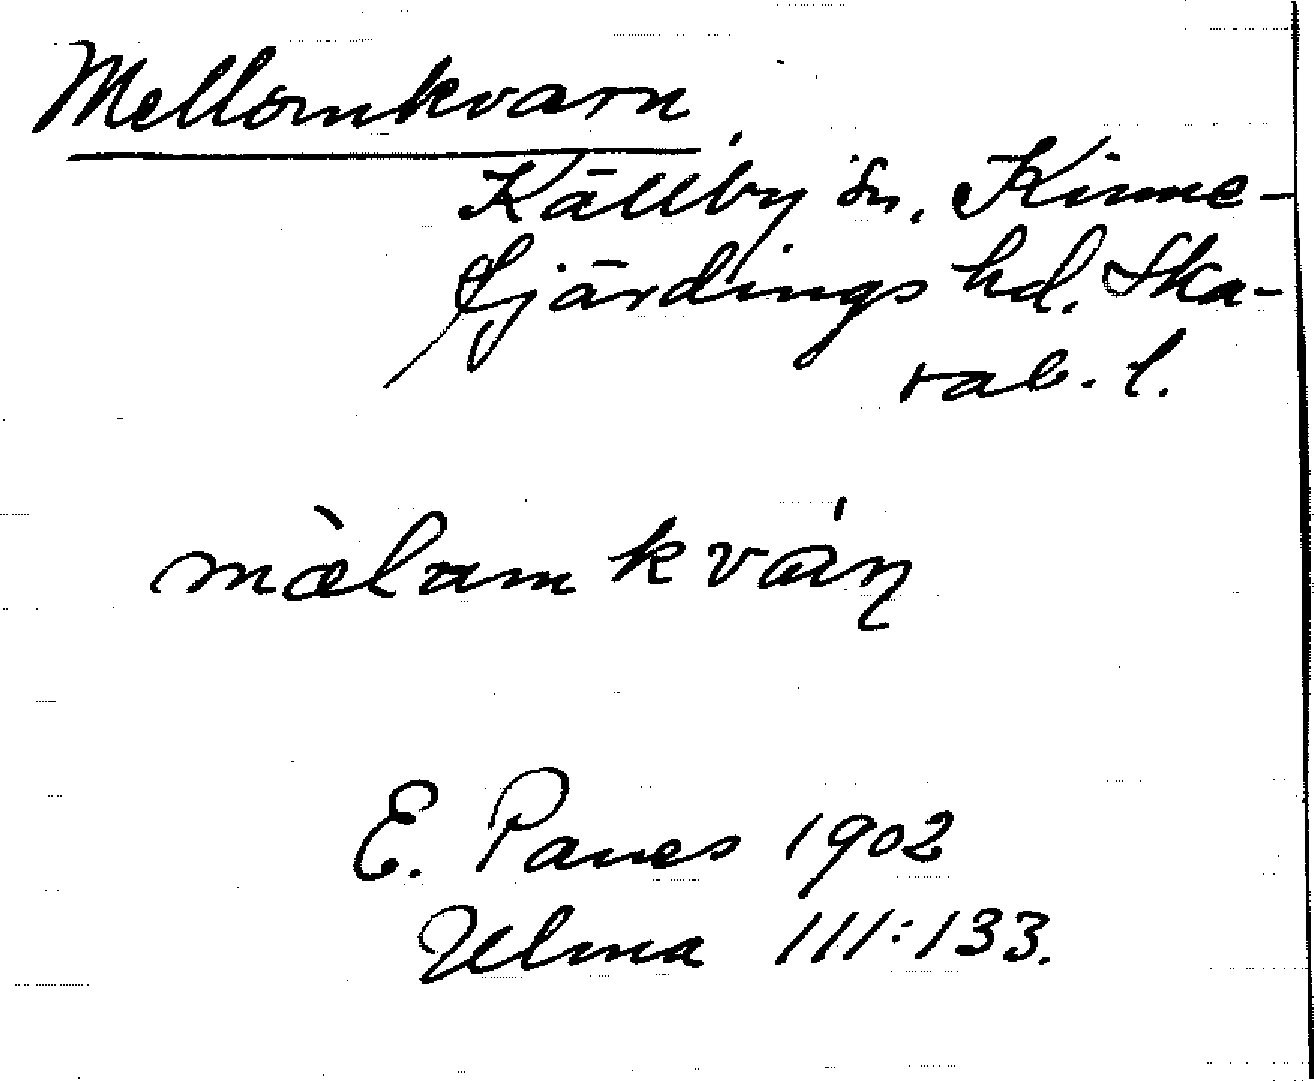 Mellomkvarn,
Källby sn, Kinne-
fjärdings hd. Ska-
rab. l.
mæ̀lam kván
E. Panes 1902
Ulma 111:133.